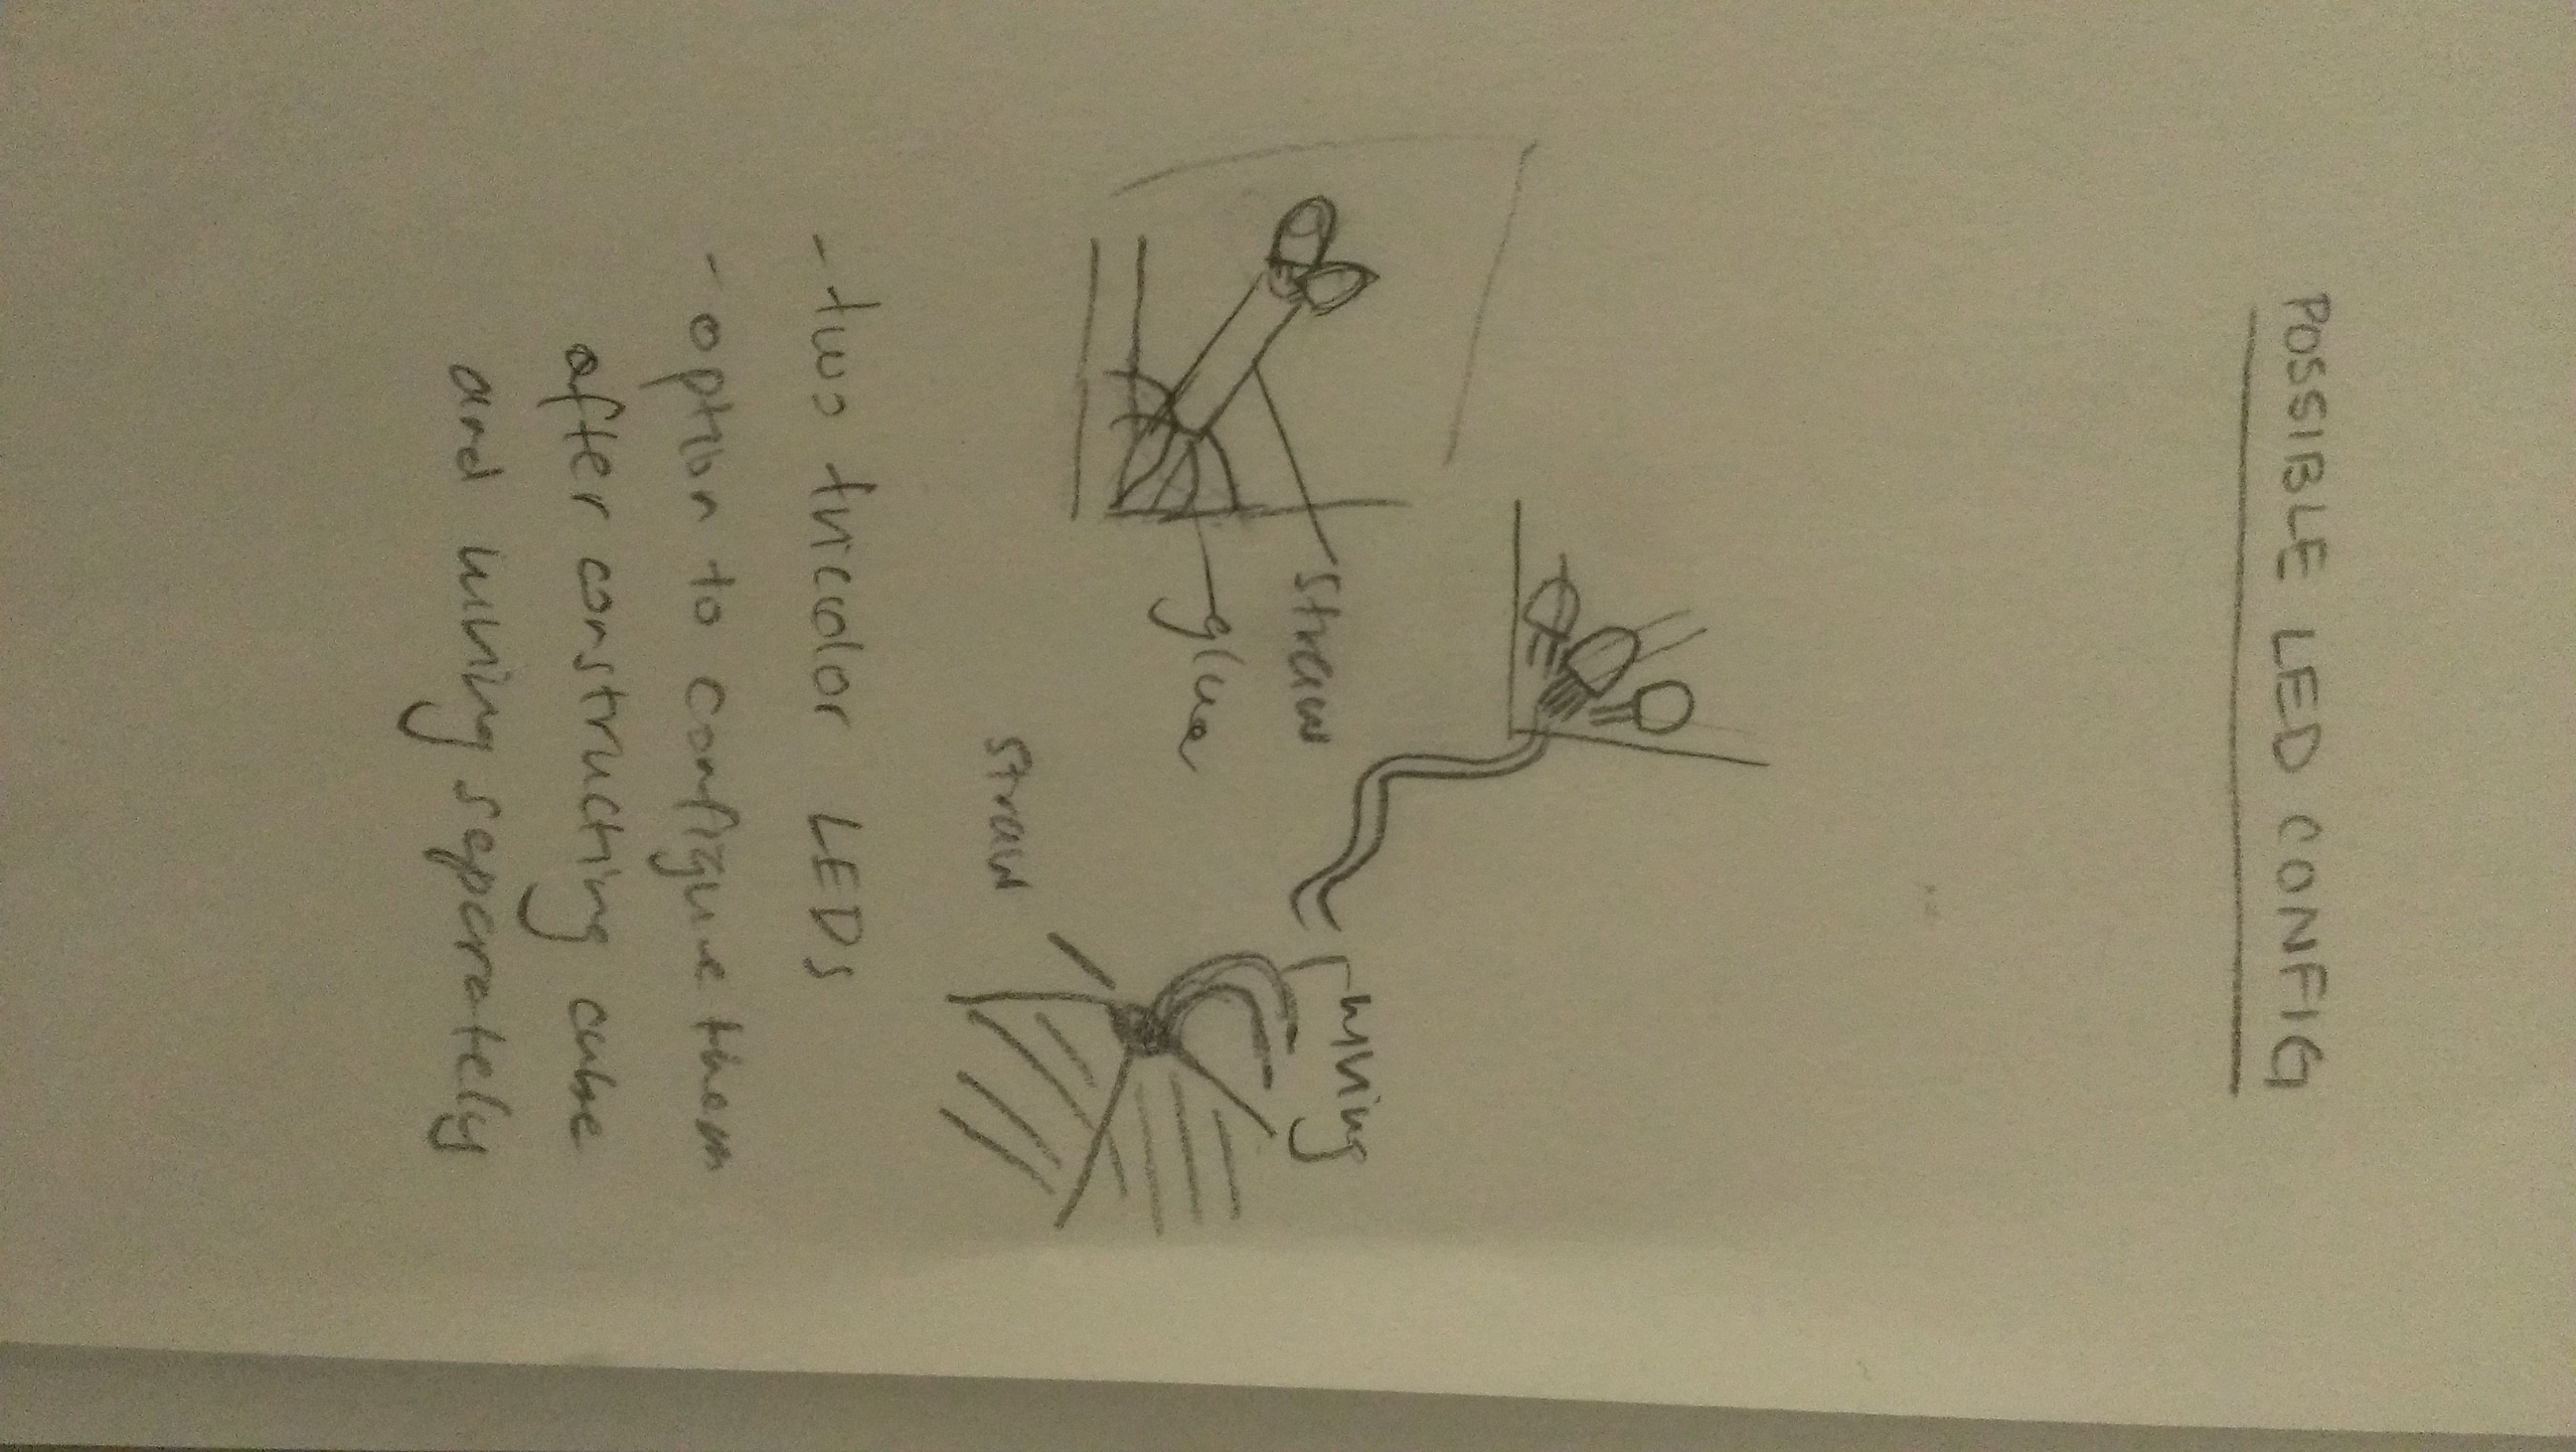 POSSIBLE LED CONFIG
straw
glue
wiring
straw
- two tricolor LEDs
- option to configure them
after constructing cube
and wiring seperately